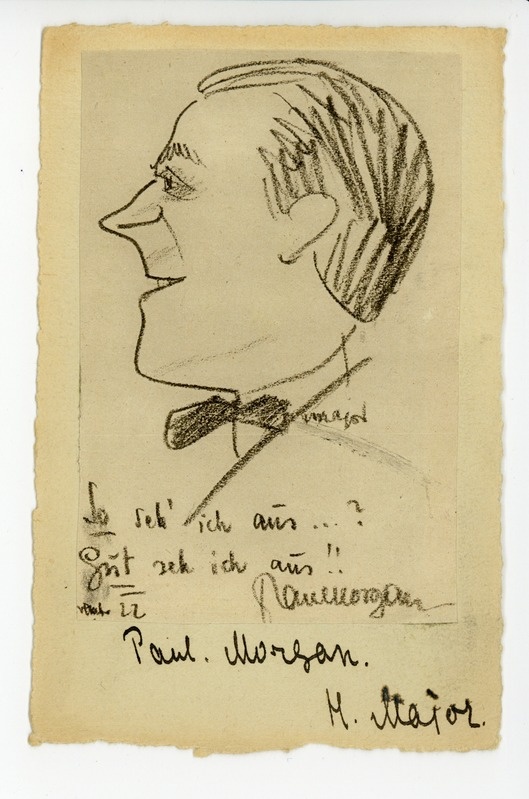 major
So seh' ich aus...?
Gut seh ich aus!!
Paul Morgan
22
Paul. Morgan.
H. Major.